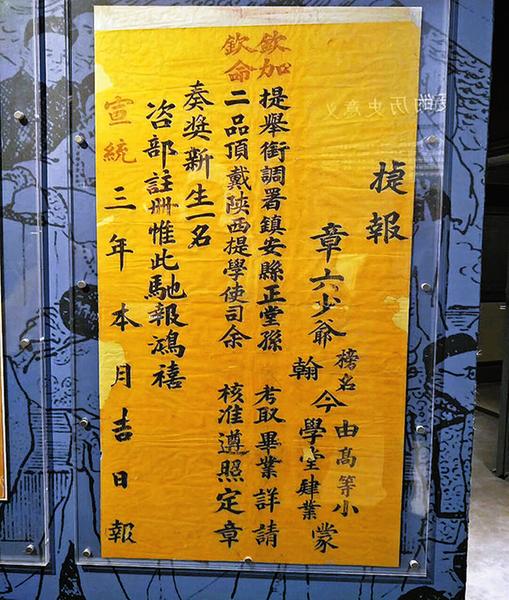 捷報
章六少爺 榜名翰 今 由高等小學堂肄業 蒙
欽加提舉銜調署鎮安縣正堂孫 考取畢業詳請
欽命二品頂戴陝西提學使司余 核准遵照定章
奏獎新生一名
咨部註冊惟此馳報鴻禧
宣統三年本月吉日報
的历史意义